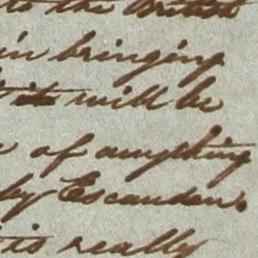 to the British
in bringing
it will be
of anything
by Escandon.
is really